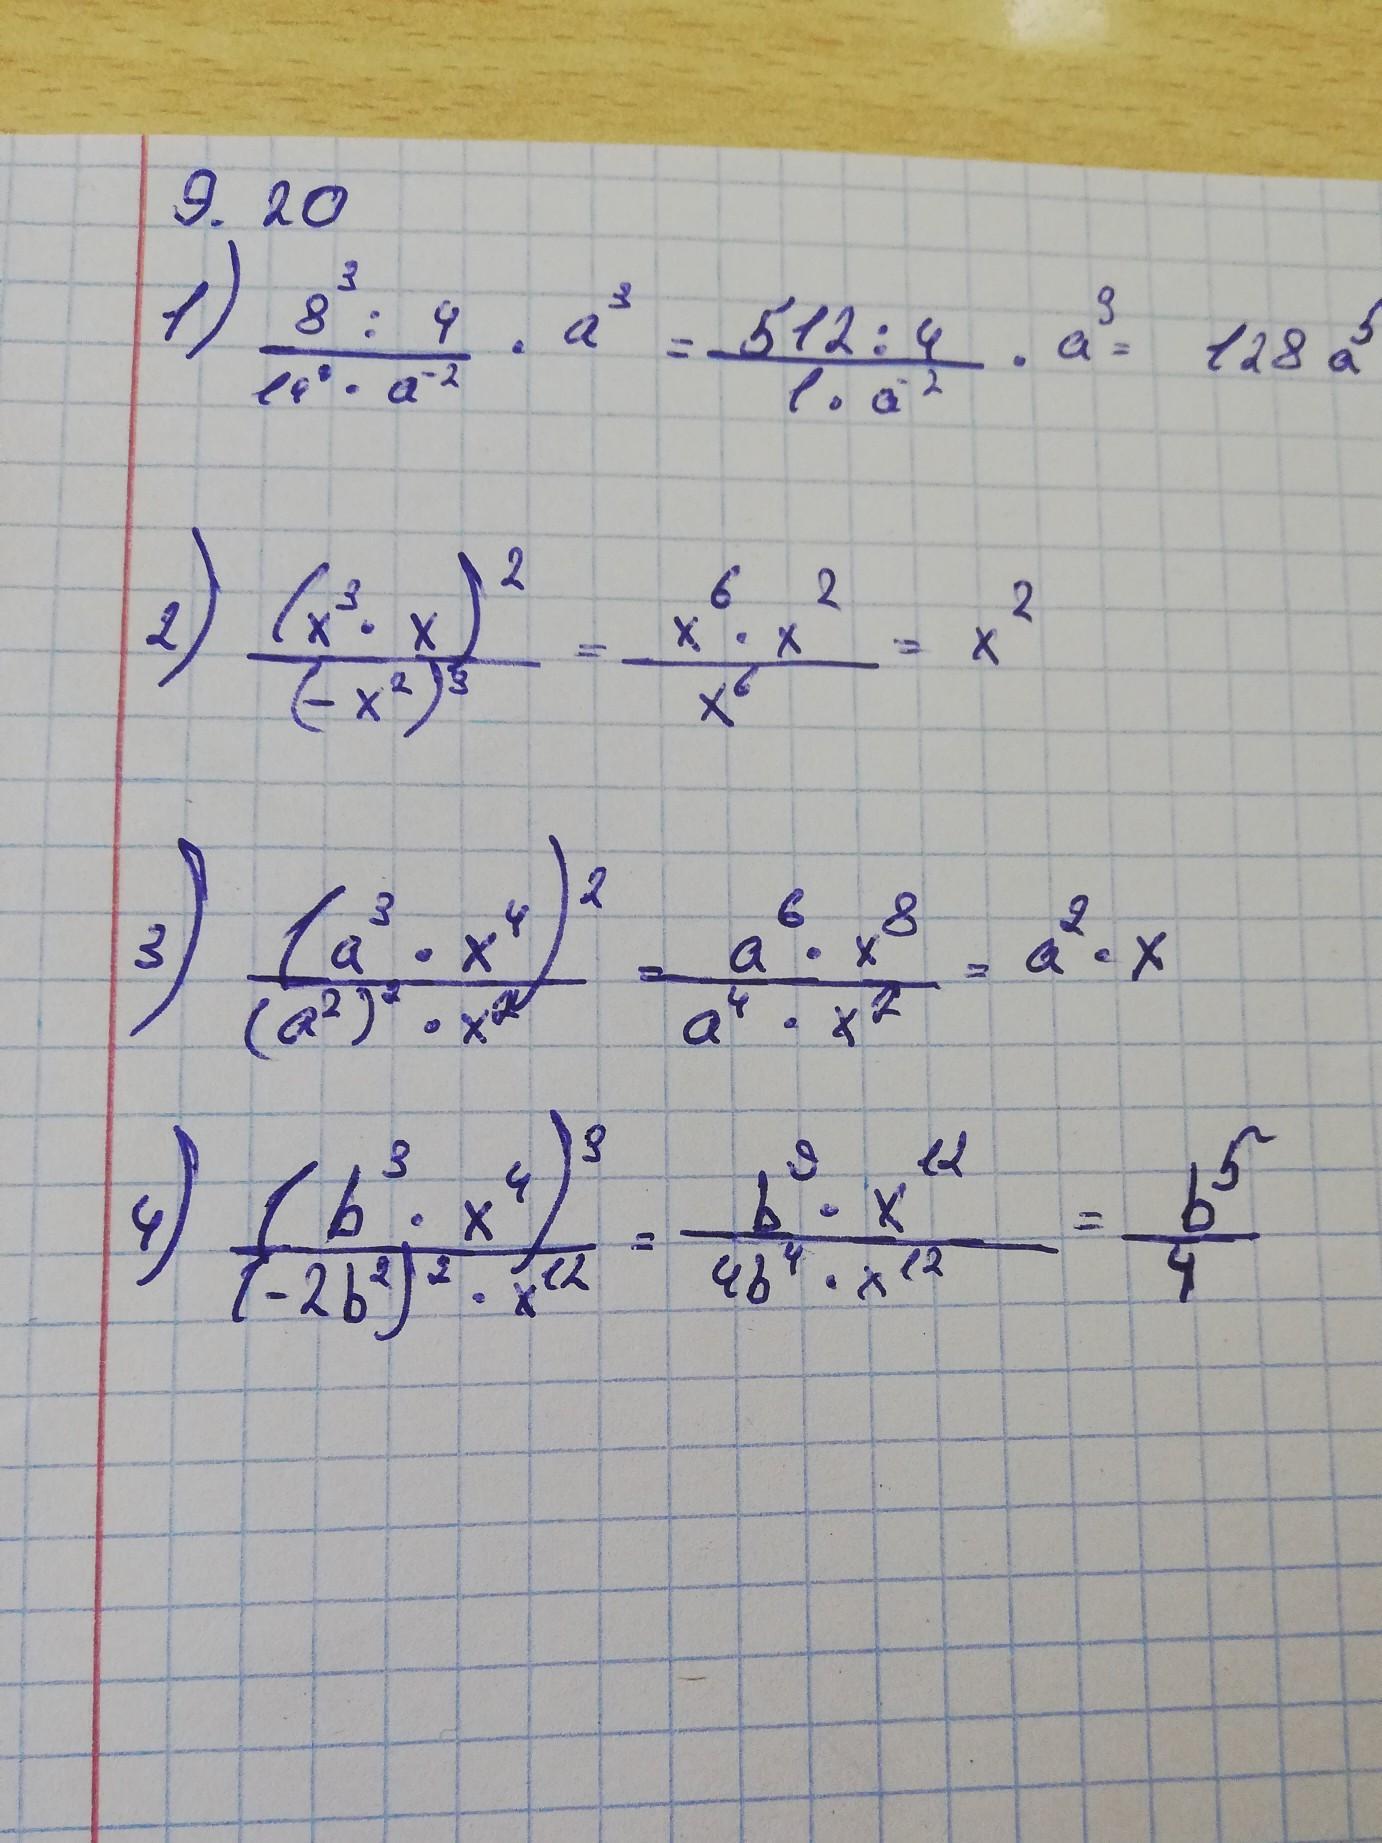 9. 20
1) (8³ : 4)/(14⁰ · a⁻²) · a³ = (512 : 4)/(1 · a⁻²) · a³ = 128 a⁵
2) (x³ · x)²/(-x²)³ = (x⁶ · x²)/x⁶ = x²
3) (a³ · x⁴)²/((a²)² · x²) = (a⁶ · x⁸)/(a⁴ · x²) = a² · x
4) (b³ · x⁴)³/((-2b²)² · x¹²) = (b⁹ · x¹²)/(4b⁴ · x¹²) = b⁵/4